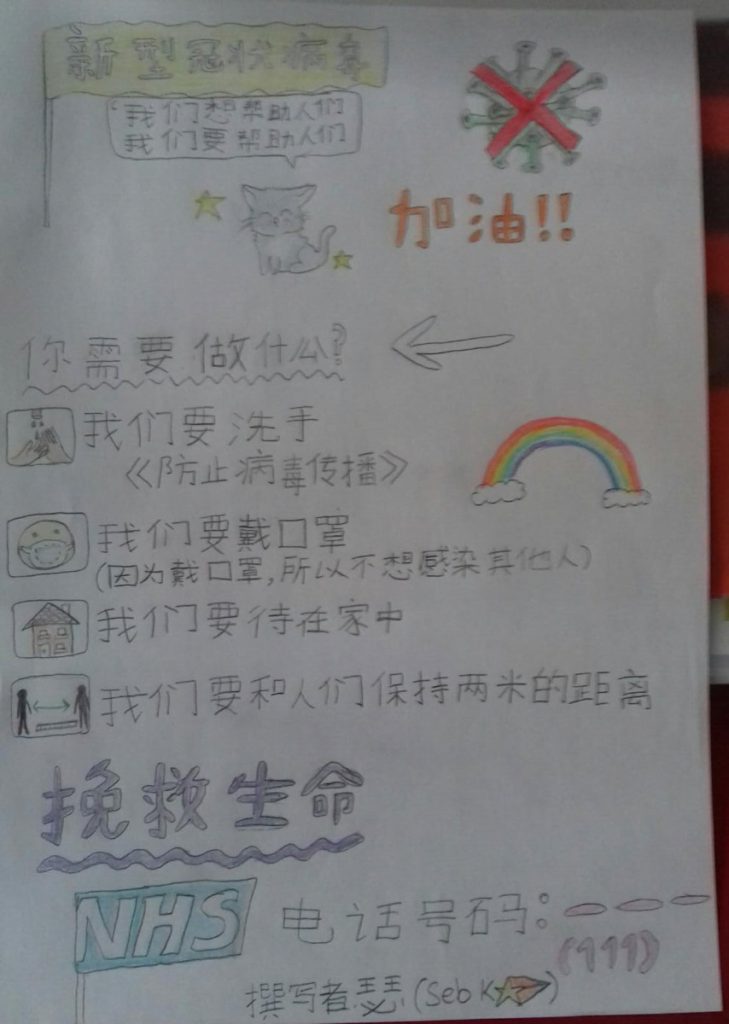 新型冠状病毒
‘我们想帮助人们
我们要帮助人们
加油!!
你需要做什么?
我们要洗手
《防止病毒传播》
我们要戴口罩
(因为戴口罩,所以不想感染其他人)
我们要待在家中
我们要和人们保持两米的距离
挽救生命
NHS
电话号码:
(111)
撰写者瑟(Seb K)